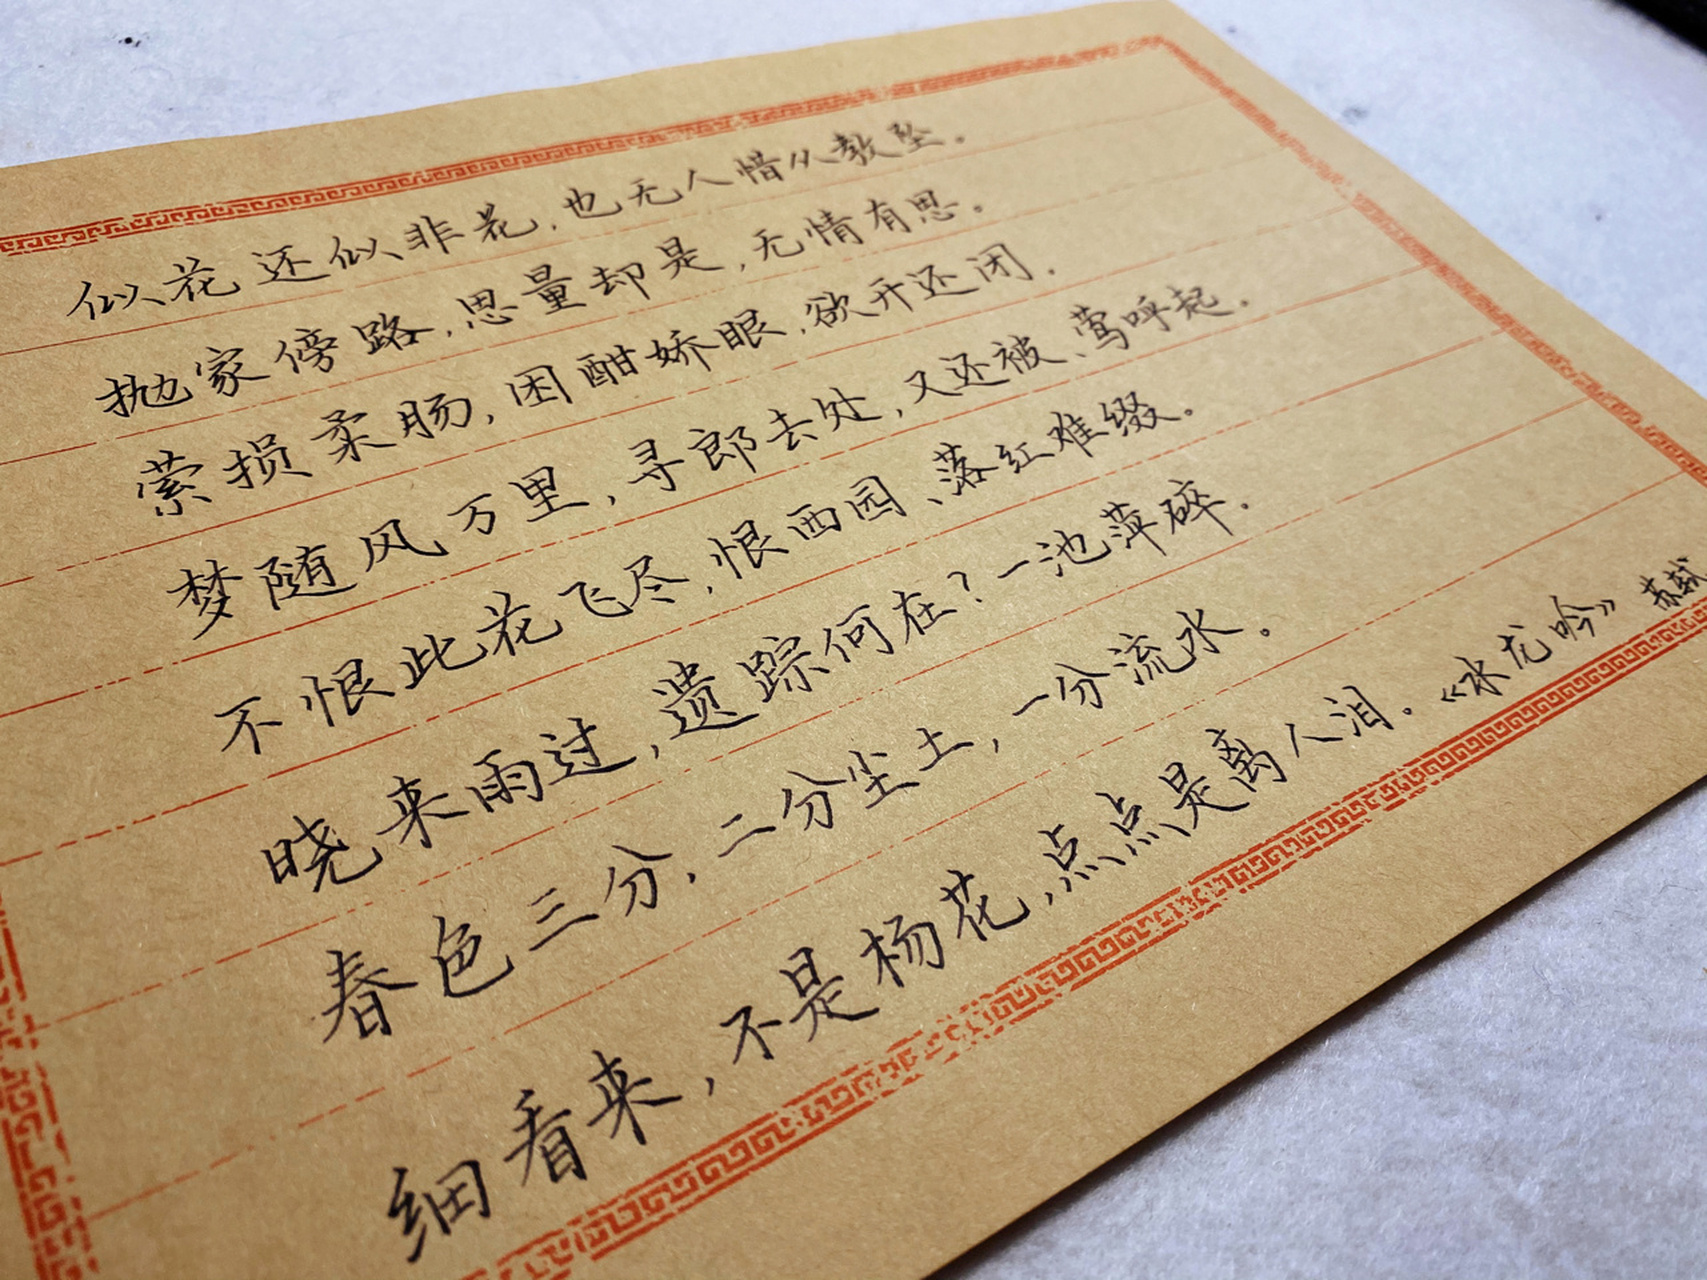 似花还似非花，也无人惜从教坠。
抛家傍路，思量却是，无情有思。
萦损柔肠，困酣娇眼，欲开还闭。
梦随风万里，寻郎去处，又还被、莺呼起。
不恨此花飞尽，恨西园、落红难缀。
晓来雨过，遗踪何在？一池萍碎。
春色三分，二分尘土，一分流水。
细看来，不是杨花，点点是离人泪。《水龙吟》 苏轼